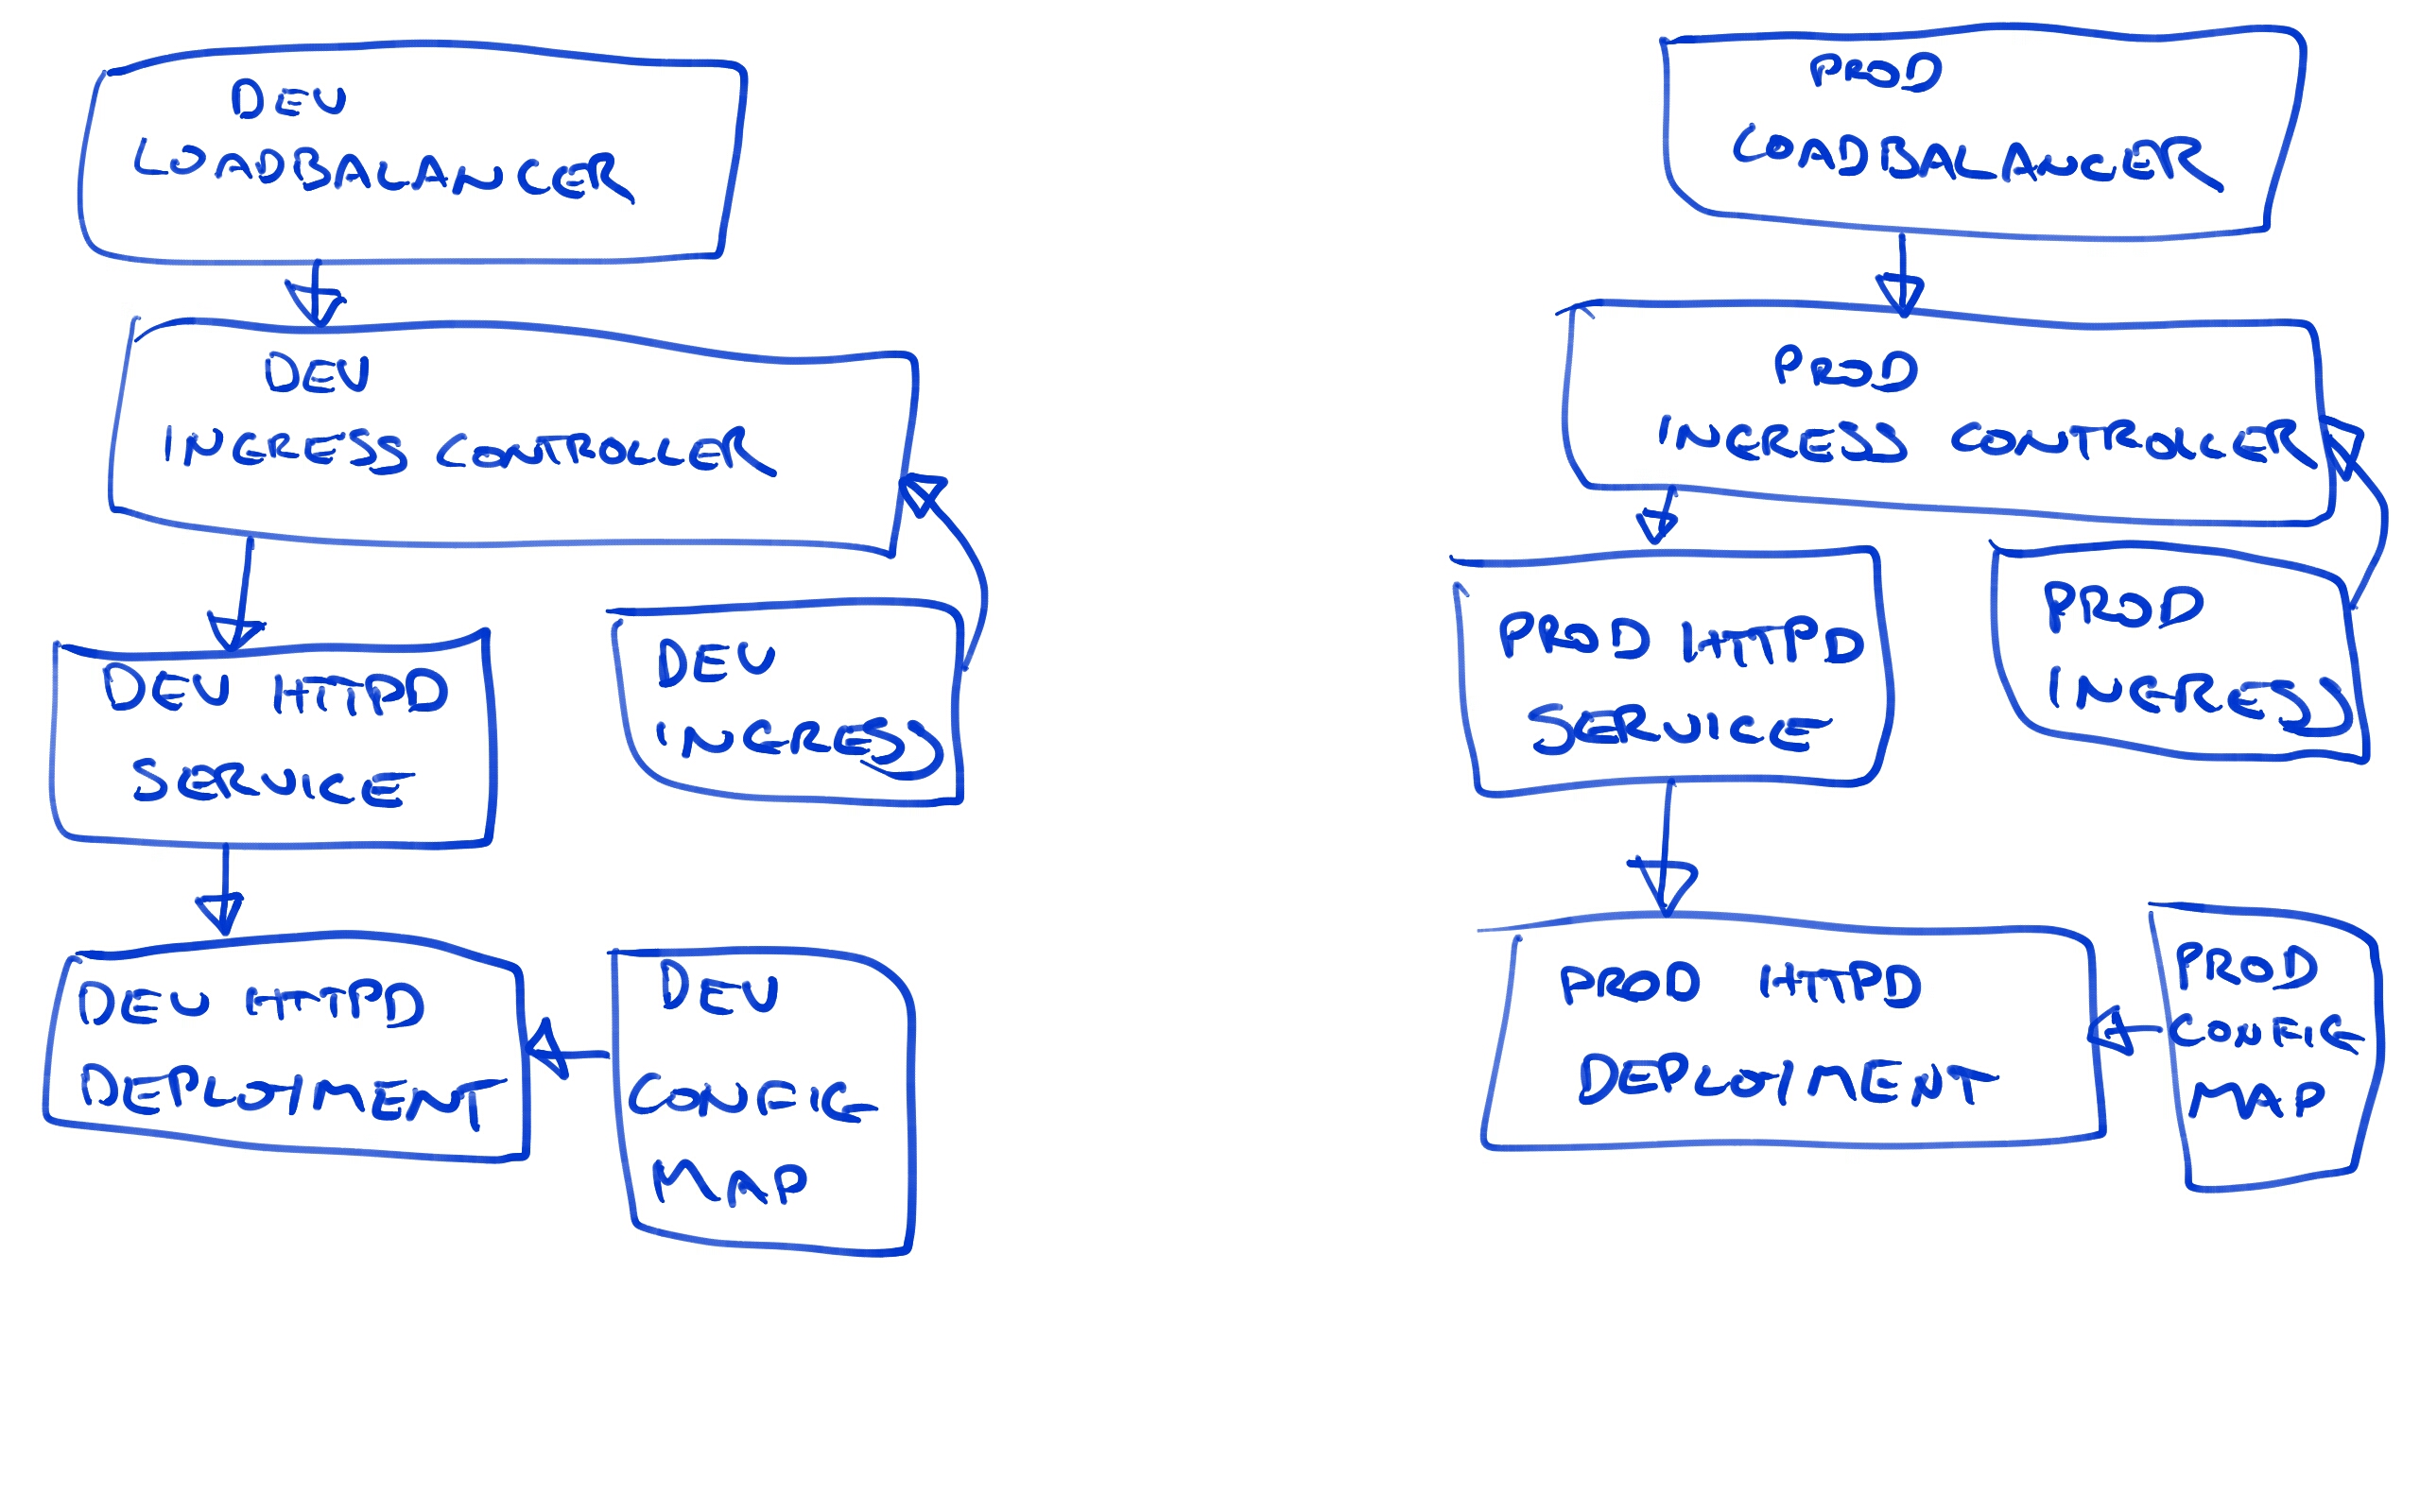 DEV
LOADBALANCER
DEV
INGRESS CONTROLLER
DEV HTTPD
SERVICE
DEV
INGRESS
DEV HTTPD
DEPLOYMENT
DEV
CONFIG
MAP
PROD
LOADBALANCER
PROD
INGRESS CONTROLLER
PROD HTTPD
SERVICE
PROD
INGRESS
PROD HTTPD
DEPLOYMENT
PROD
CONFIG
MAP